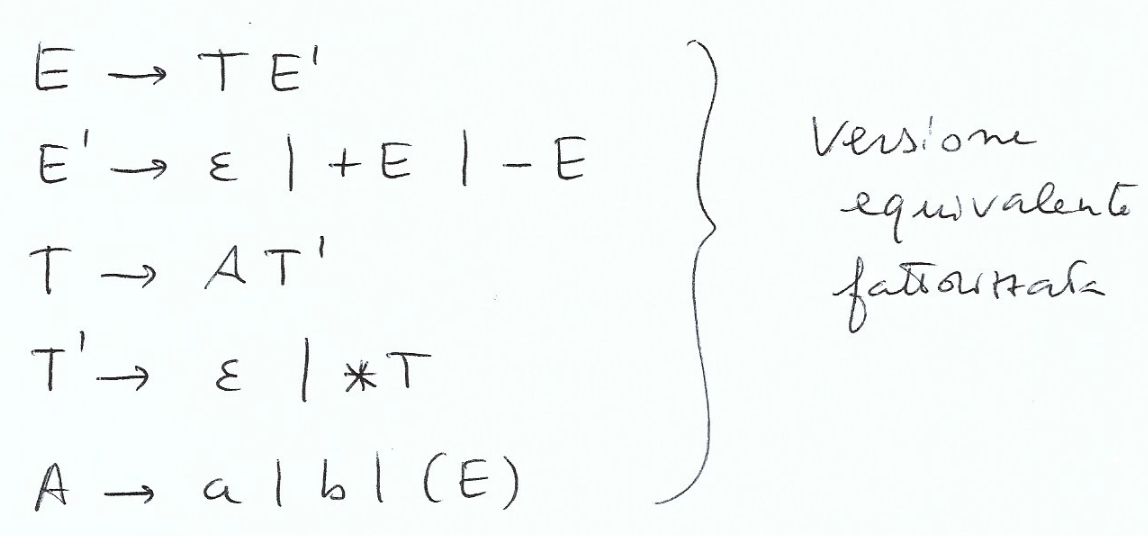 E → T E'
E' → ε | + E | - E
T → A T'
T' → ε | * T
A → a | b | (E)
Versione
equivalente
fattorizzata